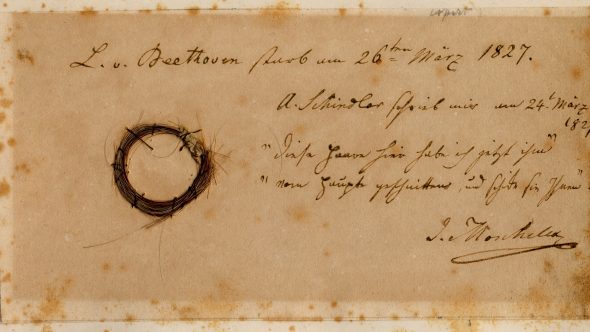 L. v. Beethoven starb am 26ten März 1827.
A. Schindler schrieb mir am 24t März
1827
"diese Haare hier habe ich jetzt ihm"
"vom Haupte geschnitten, und schicke sie Ihnen"
I. Moscheles